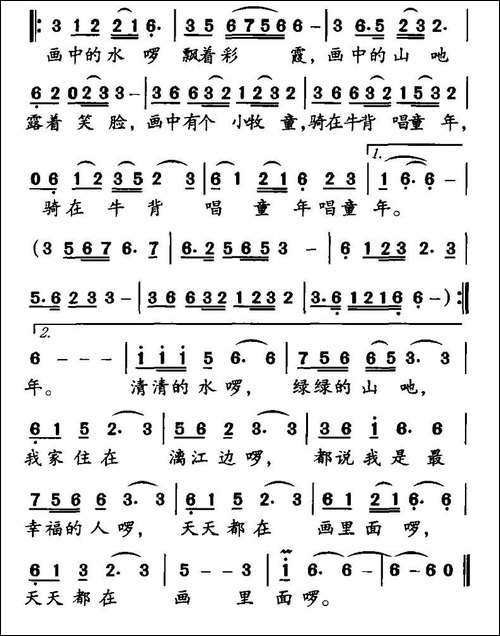 3 1 2 2 1 6. | 3 5 6 7 5 6 6 - | 3 6. 5 3 2 3 2. |
画中的水啰 飘着彩 霞，画中的山地
6 2 0 2 3 3 - | 3 6 6 3 2 1 2 3 2 | 3 6 6 3 2 1 5 3 2 |
露着 笑 脸，画中有个 小牧 童，骑在牛背 唱童年，
1.
0 6 1 2 3 5 2 3 | 6 1 2 1 6 2 3 | 1 6. 6 - |
骑在 牛 背 唱 童 年唱童 年。
(3 5 6 7 6. 7 | 6. 2 5 6 5 3 - | 6 1 2 3 2. 3 |
5. 6 2 3 3 - | 3 6 6 3 2 1 2 3 2 | 3. 6 1 2 1 6 6 -) :||
2.
6 - - - | i i i 5 6. 6 | 7 5 6 6 5 3. 3 |
年。 清清的水啰， 绿绿的山地，
6 1 5 2. 3 | 5 6 2 3. 3 | 3 6 i 6. 6 |
我家住在 漓江边啰， 都说我是最
7 5 6 6 3. 3 | 6 1 5 2. 3 | 6 1 2 1 6. 6 |
幸福的人啰， 天天都在 画里面啰，
6 1 3 2. 3 | 5 - - 3 | i 6. 6 - | 6 - 6 0 ||
天天都在 画 里面啰。